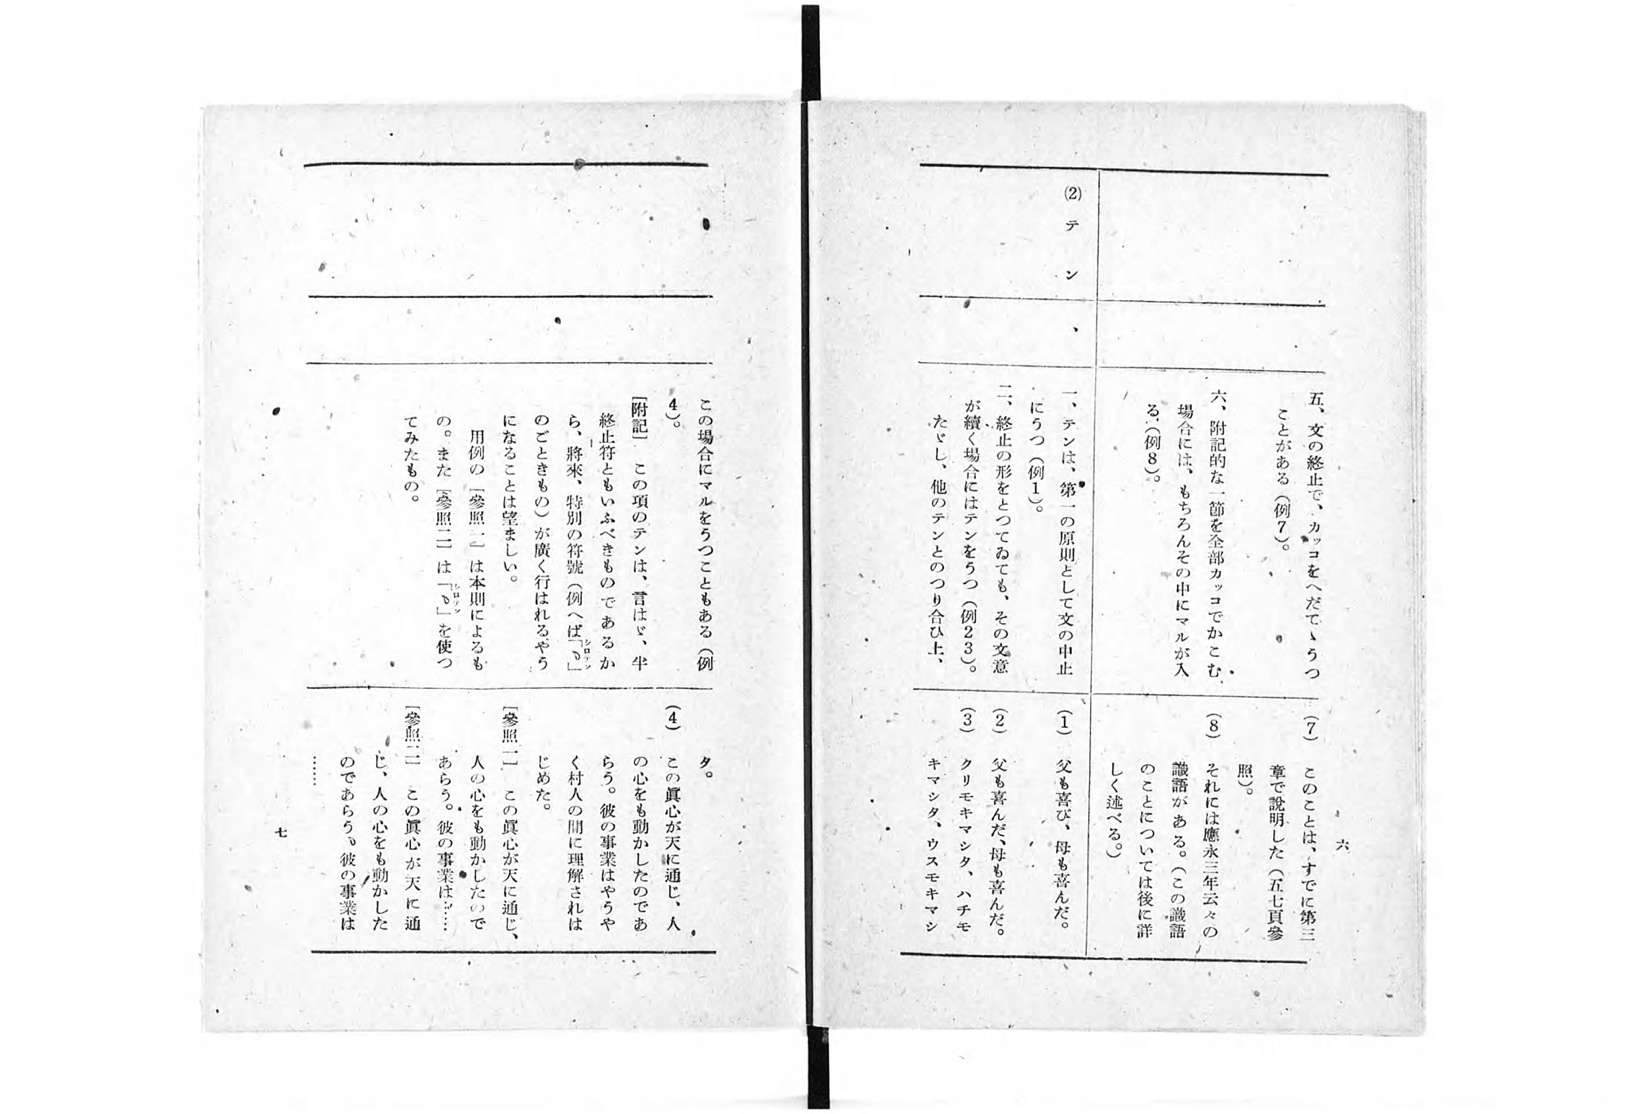 五、文の終止で、カッコをへだてゝうつ
ことがある（例7）。
六、附記的な一節を全部カッコでかこむ
場合には、もちろんその中にマルが入
る（例8）。
(7)　このことは、すでに第三
章で說明した（五七頁參
照）。
(8)　それには應永三年云々の
識語がある。（この識語
のことについては後に詳
しく述べる。）
六
(2)テン
、
一、テンは、第一の原則として文の中止
にうつ（例1）。
二、終止の形をとつてゐても、その文意
が續く場合にはテンをうつ（例23）。
たゞし、他のテンとのつり合ひ上、
(1)　父も喜び、母も喜んだ。
(2)　父も喜んだ、母も喜んだ。
(3)　クリモキマシタ、ハチモ
キマシタ、ウスモキマシ
この場合にマルをうつこともある（例
4）。
［附記］　この項のテンは、言はゞ、半
終止符ともいふべきものであるか
ら、將來、特別の符號（例へば「」シロテン
のごときもの）が廣く行はれるやう
になることは望ましい。
用例の［參照一］は本則によるも
の。また［參照二］は「」シロテンを使つ
てみたもの。
タ。
(4)　この眞心が天に通じ、人
の心をも動かしたのであ
らう。彼の事業はやうや
く村人の間に理解されは
じめた。
［參照一］　この眞心が天に通じ、
人の心をも動かしたので
あらう。彼の事業は……
［參照二］　この眞心が天に通
じ、人の心をも動かした
のであらう彼の事業は
……
七